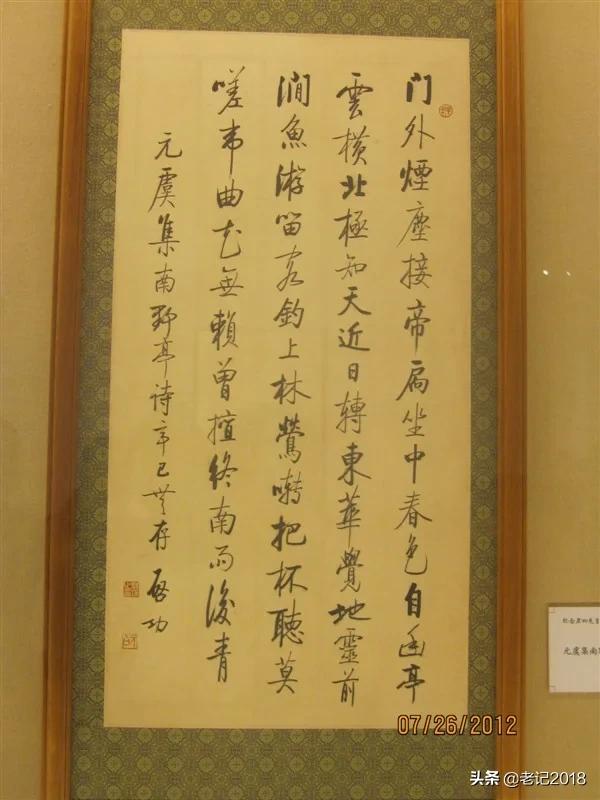 門外煙塵接帝扃坐中春色自幽亭
雲橫北極知天近日轉東華覺地靈前
澗魚游留客釣上林鶯囀把杯聽莫
嗟韋曲花無賴曾擅終南雨後青
元虞集南野亭诗辛巳存 啓功
元虞集南
07/26/2012
头条 @老记2018